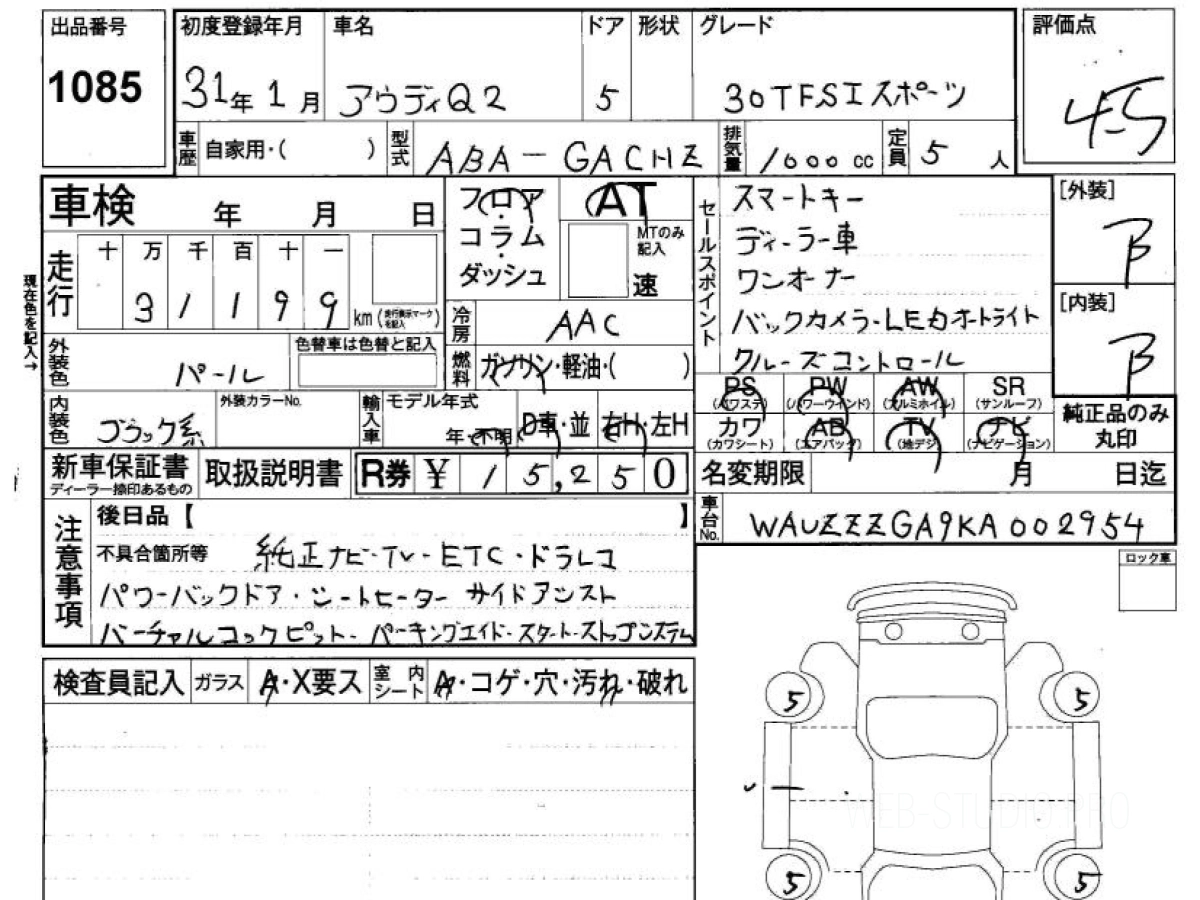 出品番号 初度登録年月 車名 ドア 形状 グレード 評価点
1085 31年 1月 アウディQ2 5 30TFSIスポーツ 4.5
車歴 自家用・( ) 型式 ABA-GACHZ 排気量 1000 cc 定員 5 人
車検 年 月 日 フロア・コラム・ダッシュ AT セールスポイント スマートキー [外装]
MTのみ記入 速 ディーラー車 B
走行 十 万 千 百 十 一 ワンオーナー [内装]
3 1 1 9 9 km (走行表示マークを記入) 冷房 AAC バックカメラ・LEDオートライト B
現在色を記入→
外装色 パール 色替車は色替と記入 燃料 ガソリン・軽油・( ) クルーズコントロール
PS (パワステ) PW (パワーウインド) AW (アルミホイル) SR (サンルーフ) 純正品のみ丸印
内装色 ブラック系 外装カラーNo. 輸入車 モデル年式 年・不明 D車・並 右H・左H カワ (カワシート) AB (エアバッグ) TV (地デジ) ナビ (ナビゲーション)
新車保証書 ディーラー捺印あるもの 取扱説明書 R券 ¥ 15,250 名変期限 月 日迄
注意事項 後日品【 】 車台No. WAUZZZGA9KA002954
不具合箇所等 純正ナビ・TV・ETC・ドラレコ ロック車
パワーバックドア・シートヒーター サイドアシスト
バーチャルコックピット・パーキングエイド・スタートストップシステム
検査員記入 ガラス A・X要ス 室内シート A・コゲ・穴・汚れ・破れ
5 5
WEB-STUDIO.PRO
5 5